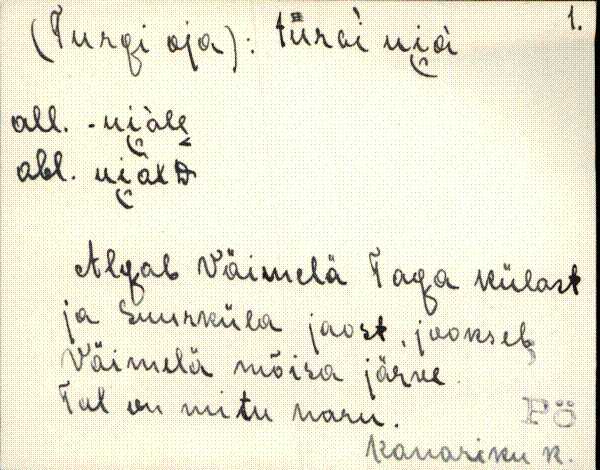 1.
(Turgi oja):
all.
abl.
Algab Väimelä Taga külast
ja Suurküla jaost, jookseb
Väimelä mõisa järve.
Tal on mitu haru.
Põ
Kanariku k.